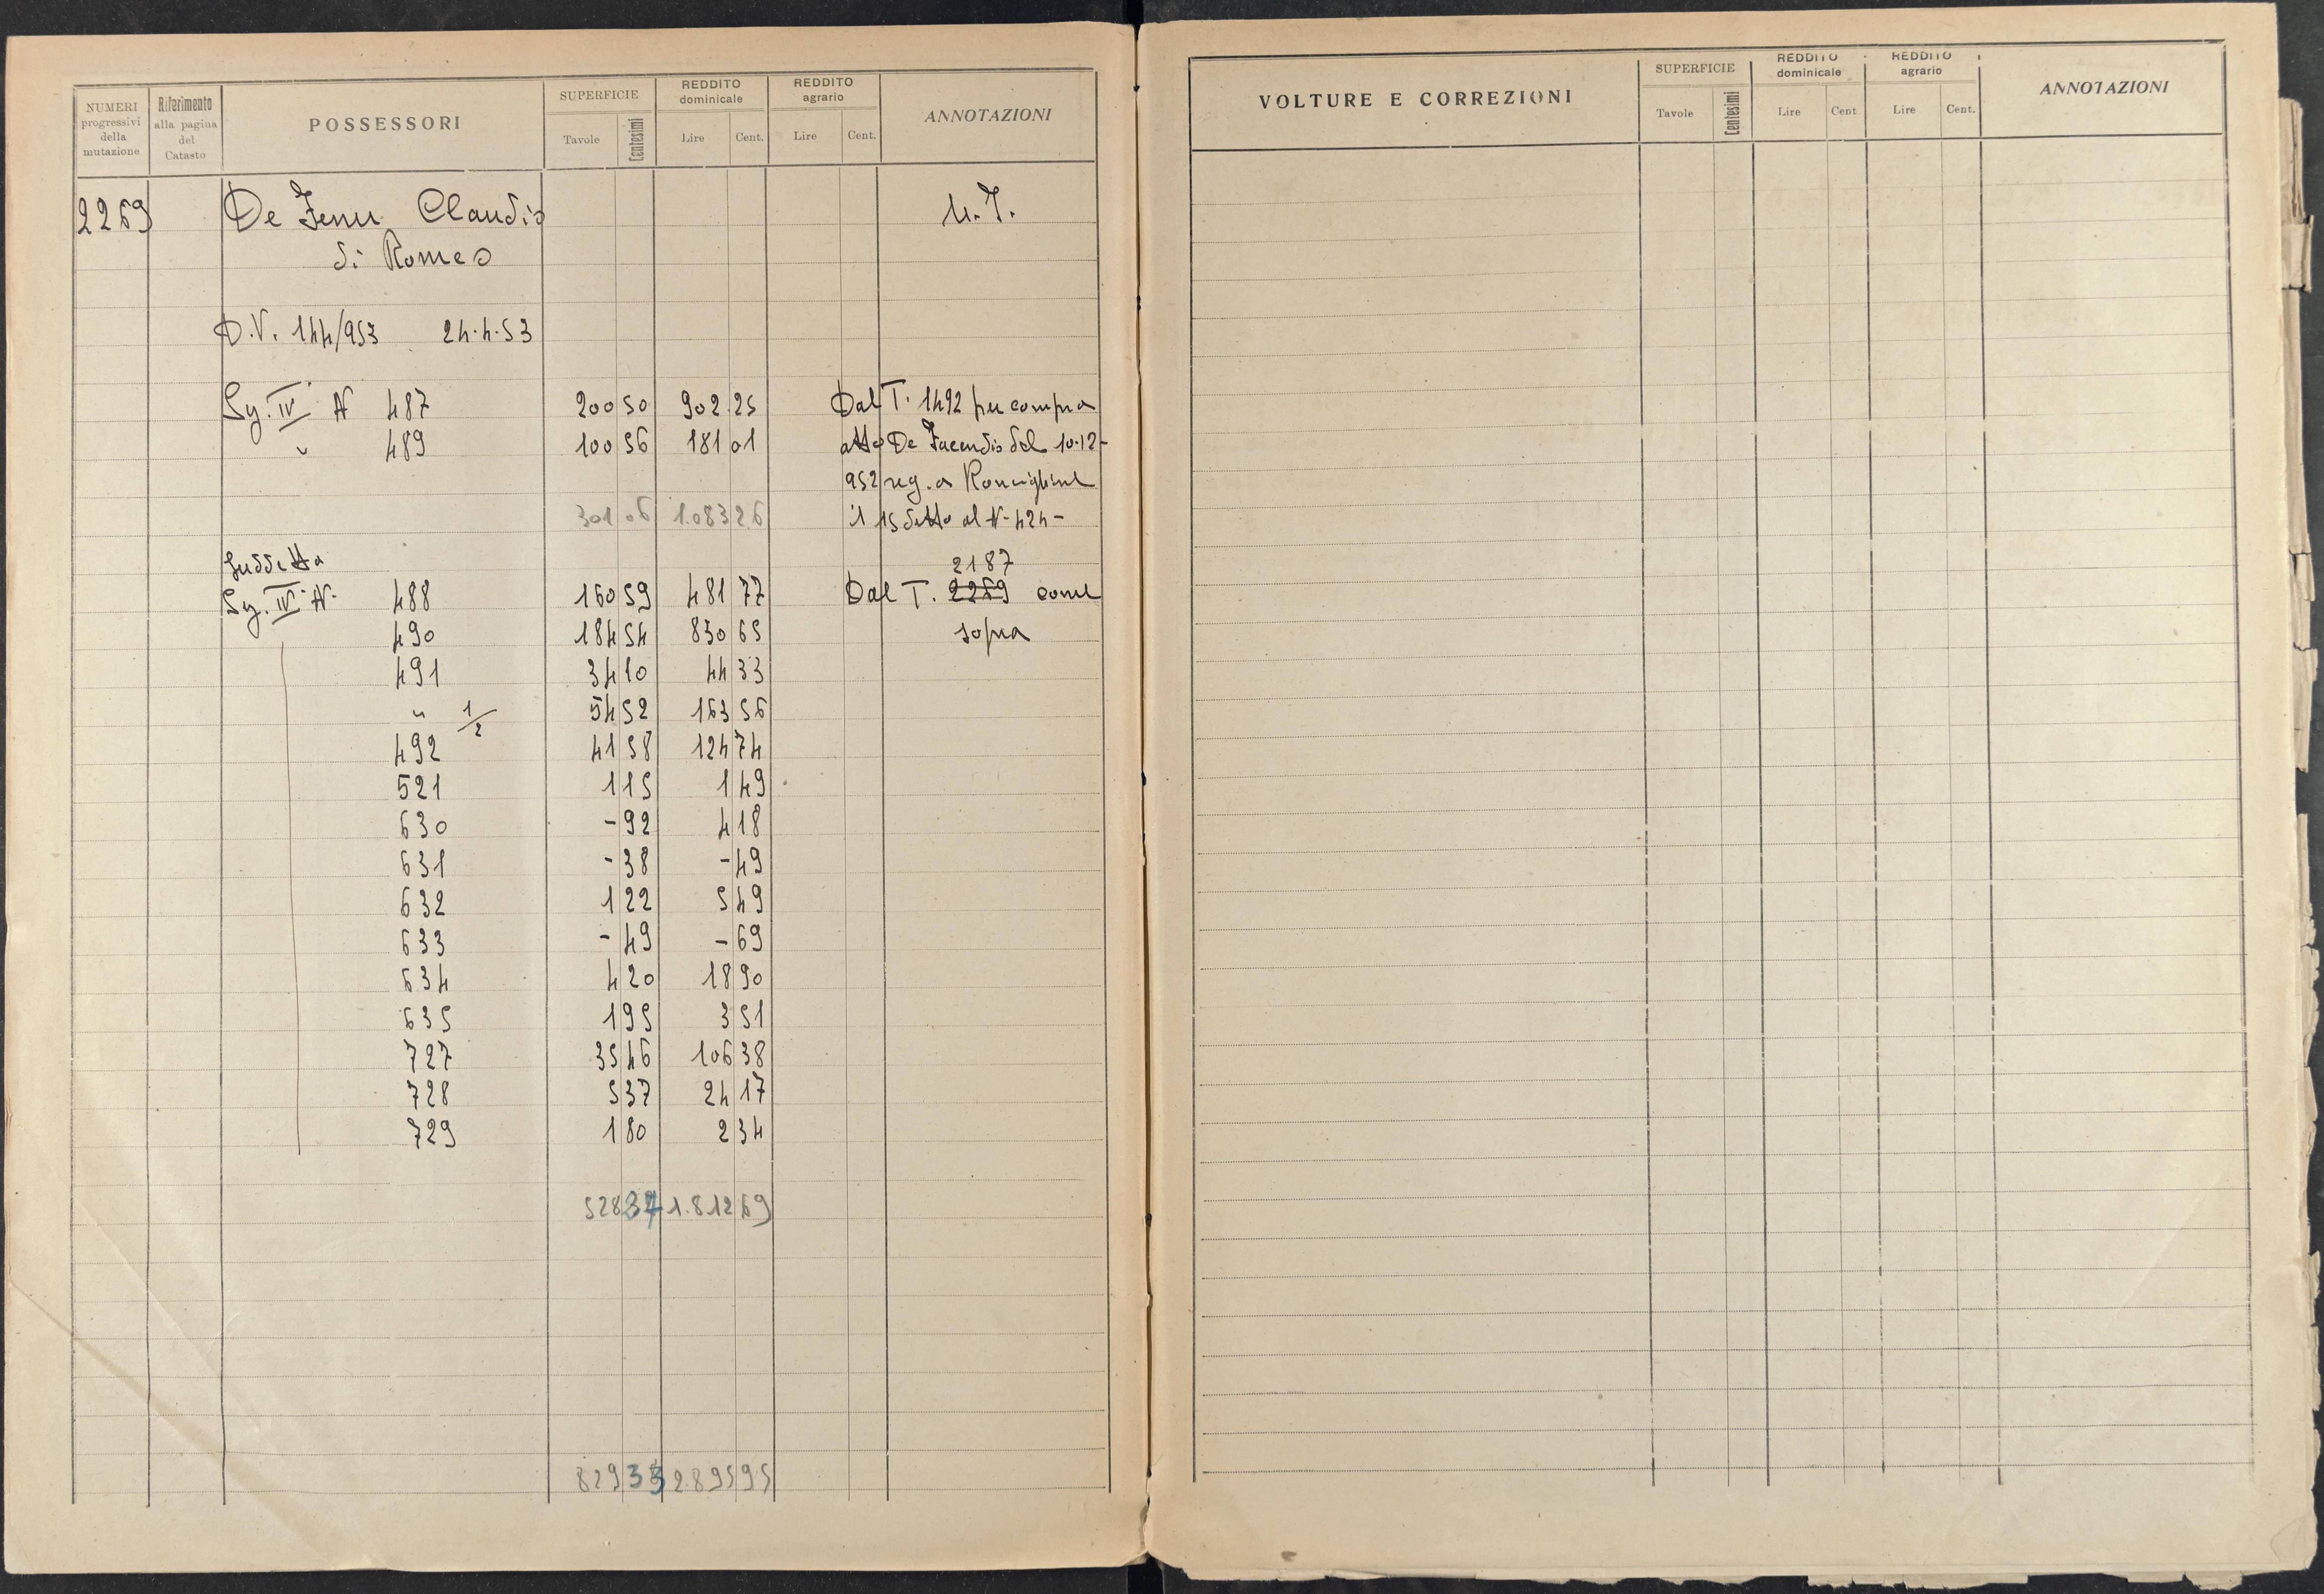 NUMERI progressivi della mutazione
Riferimento alla pagina del Catasto
POSSESSORI
SUPERFICIE
Tavole Centesimi
REDDITO dominicale
Lire Cent.
REDDITO agrario
Lire Cent.
ANNOTAZIONI
2269 De Fenu Claudio U.T.
di Romeo
D.V. 144/953 24.4.53
Sz. IV N 487 200 50 902 25 Dal T. 1492 per compra
" 489 100 56 181 01 atto De Facendis del 10-12-
952 reg. a Ronciglione
301 06 1.083 26 il 15 detto al N- 424-
Suddetto 2187
Sz. IV N. 488 160 59 481 77 Dal T. 2269 come
490 184 54 830 65 sopra
491 34 10 44 33
" 1/2 54 52 163 56
492 41 58 124 74
521 1 15 1 49
630 - 92 4 18
631 - 38 - 49
632 1 22 5 49
633 - 49 - 69
634 4 20 18 90
635 1 95 3 51
727 35 46 106 38
728 5 37 24 17
729 1 80 2 34
528 37 1.812 69
829 33 2.895 95
VOLTURE E CORREZIONI
SUPERFICIE
Tavole Centesimi
REDDITO dominicale
Lire Cent
REDDITO agrario
Lire Cent.
ANNOTAZIONI